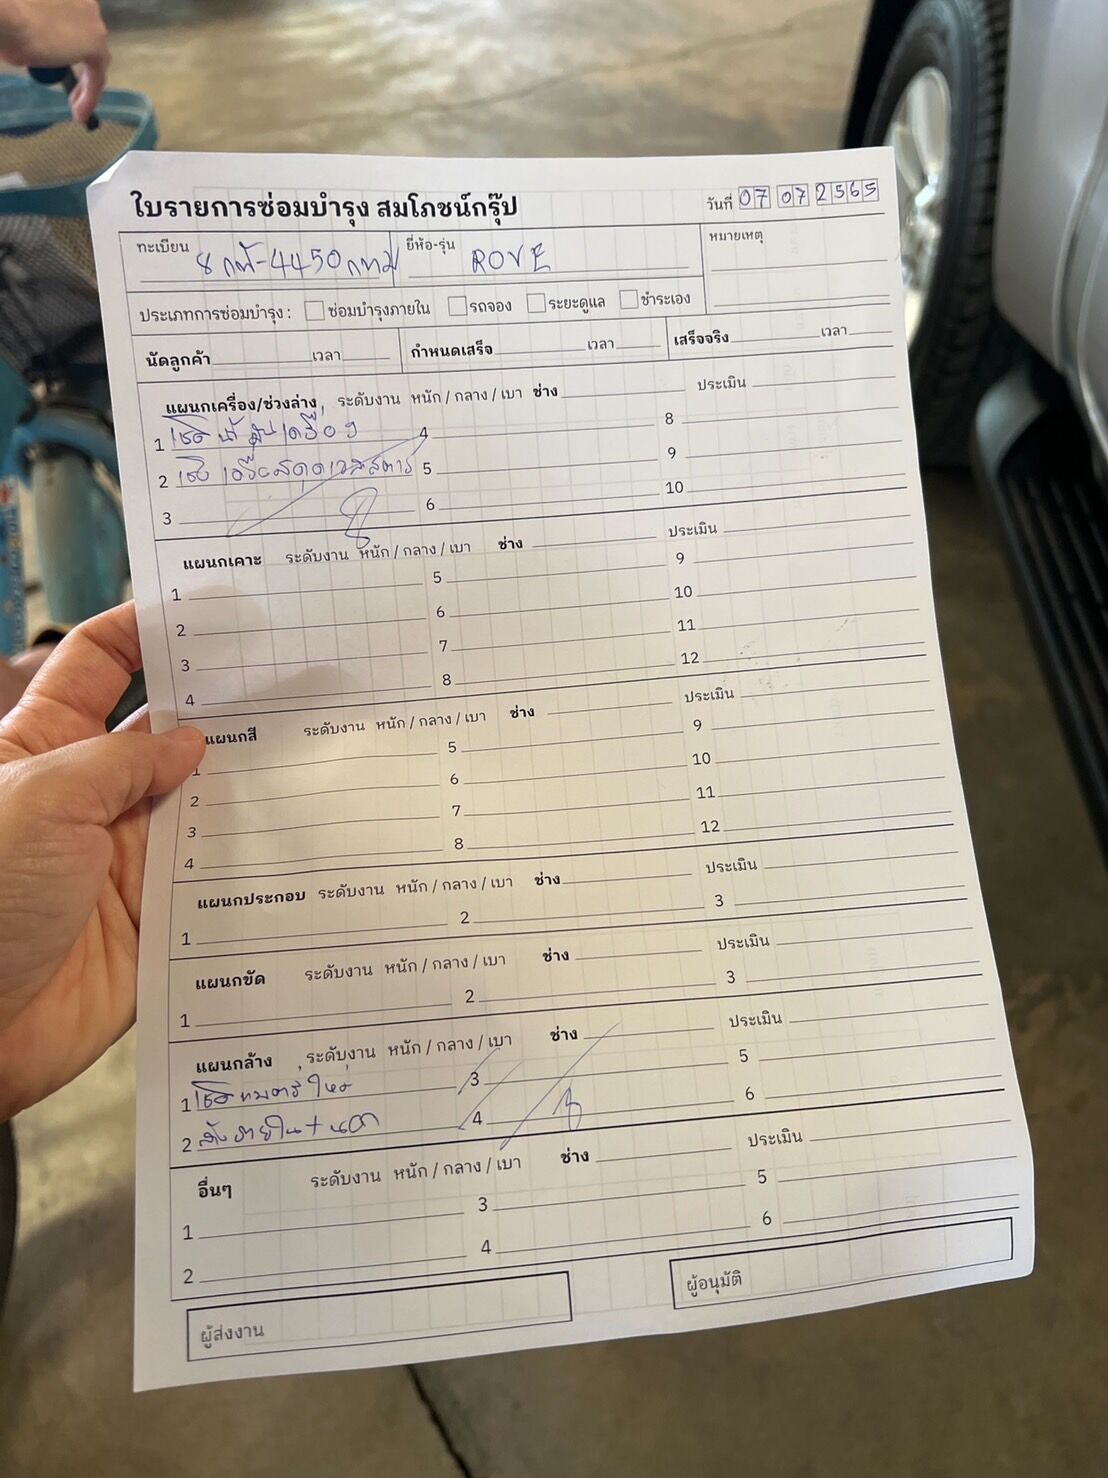 ใบรายการซ่อมบำรุง สมโภชน์กรุ๊ป
วันที่ 07 07 2565
ทะเบียน -4450 กทม
ยี่ห้อ-รุ่น ROVE
หมายเหตุ
ประเภทการซ่อมบำรุง : ซ่อมบำรุงภายใน รถจอง ระยะดูแล ชำระเอง
นัดลูกค้า เวลา กำหนดเสร็จ เวลา เสร็จจริง เวลา
แผนกเครื่อง/ช่วงล่าง ระดับงาน หนัก / กลาง / เบา ช่าง ประเมิน
1 น้ำมันเครื่อง 4 8
2 5 9
3 6 10
แผนกเคาะ ระดับงาน หนัก / กลาง / เบา ช่าง ประเมิน
1 5 9
2 6 10
3 7 11
4 8 12
แผนกสี ระดับงาน หนัก / กลาง / เบา ช่าง ประเมิน
1 5 9
2 6 10
3 7 11
4 8 12
แผนกประกอบ ระดับงาน หนัก / กลาง / เบา ช่าง ประเมิน
1 2 3
แผนกขัด ระดับงาน หนัก / กลาง / เบา ช่าง ประเมิน
1 2 3
แผนกล้าง ระดับงาน หนัก / กลาง / เบา ช่าง ประเมิน
1 3 5
2 ล้างภายใน+นอก 4 6
อื่นๆ ระดับงาน หนัก / กลาง / เบา ช่าง ประเมิน
1 3 5
2 4 6
ผู้ส่งงาน
ผู้อนุมัติ